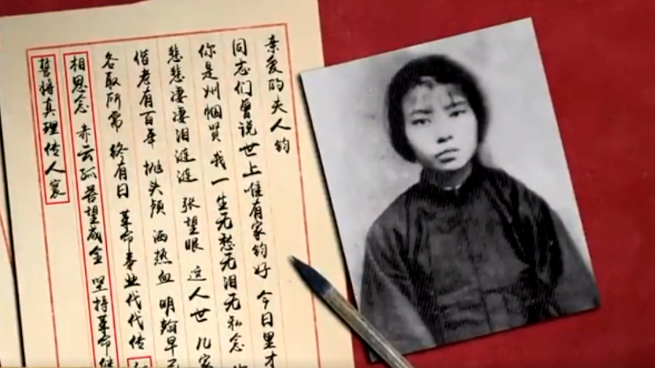 亲爱的夫人钧
同志们曾说世上惟有家钧好 今日里才
你是巾帼贤 我一生无愁无泪无私念
悲悲凄凄泪涟涟 张望眼 这人世 几家
偕老有百年 抛头颅 洒热血 明翰早已
各取所需 终有日 革命事业代代传 红
相思念 赤云孤苦望成全 坚持革命继
誓将真理传人寰